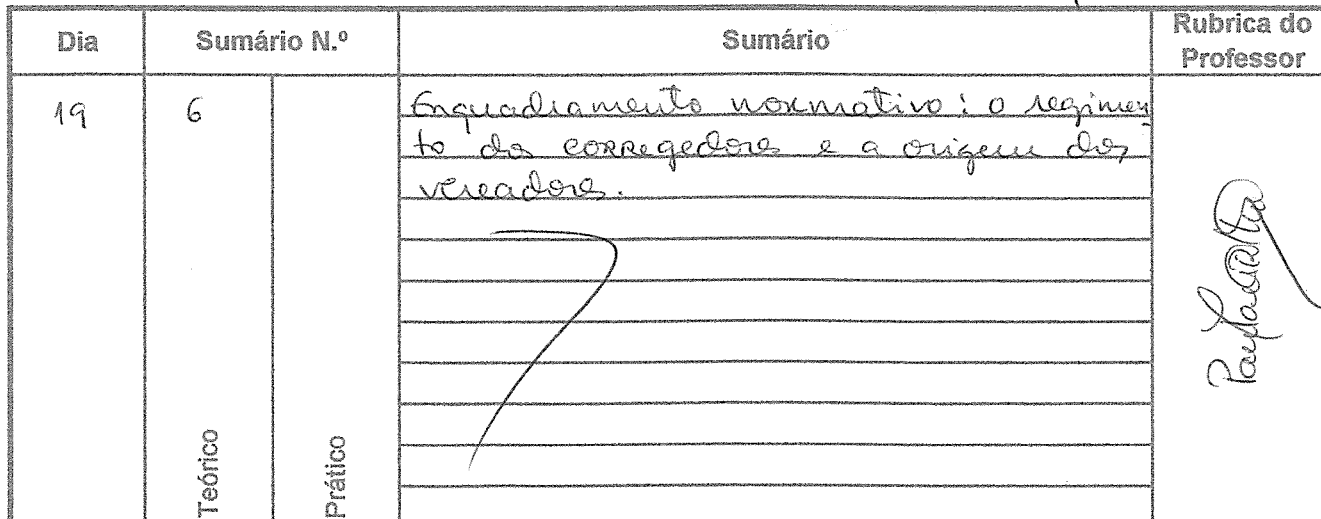 Dia Sumário N.º Sumário Rubrica do Professor
19 6 Enquadramento normativo: o regimen-
to dos corregedores e a origem dos
vereadores.
Teórico Prático